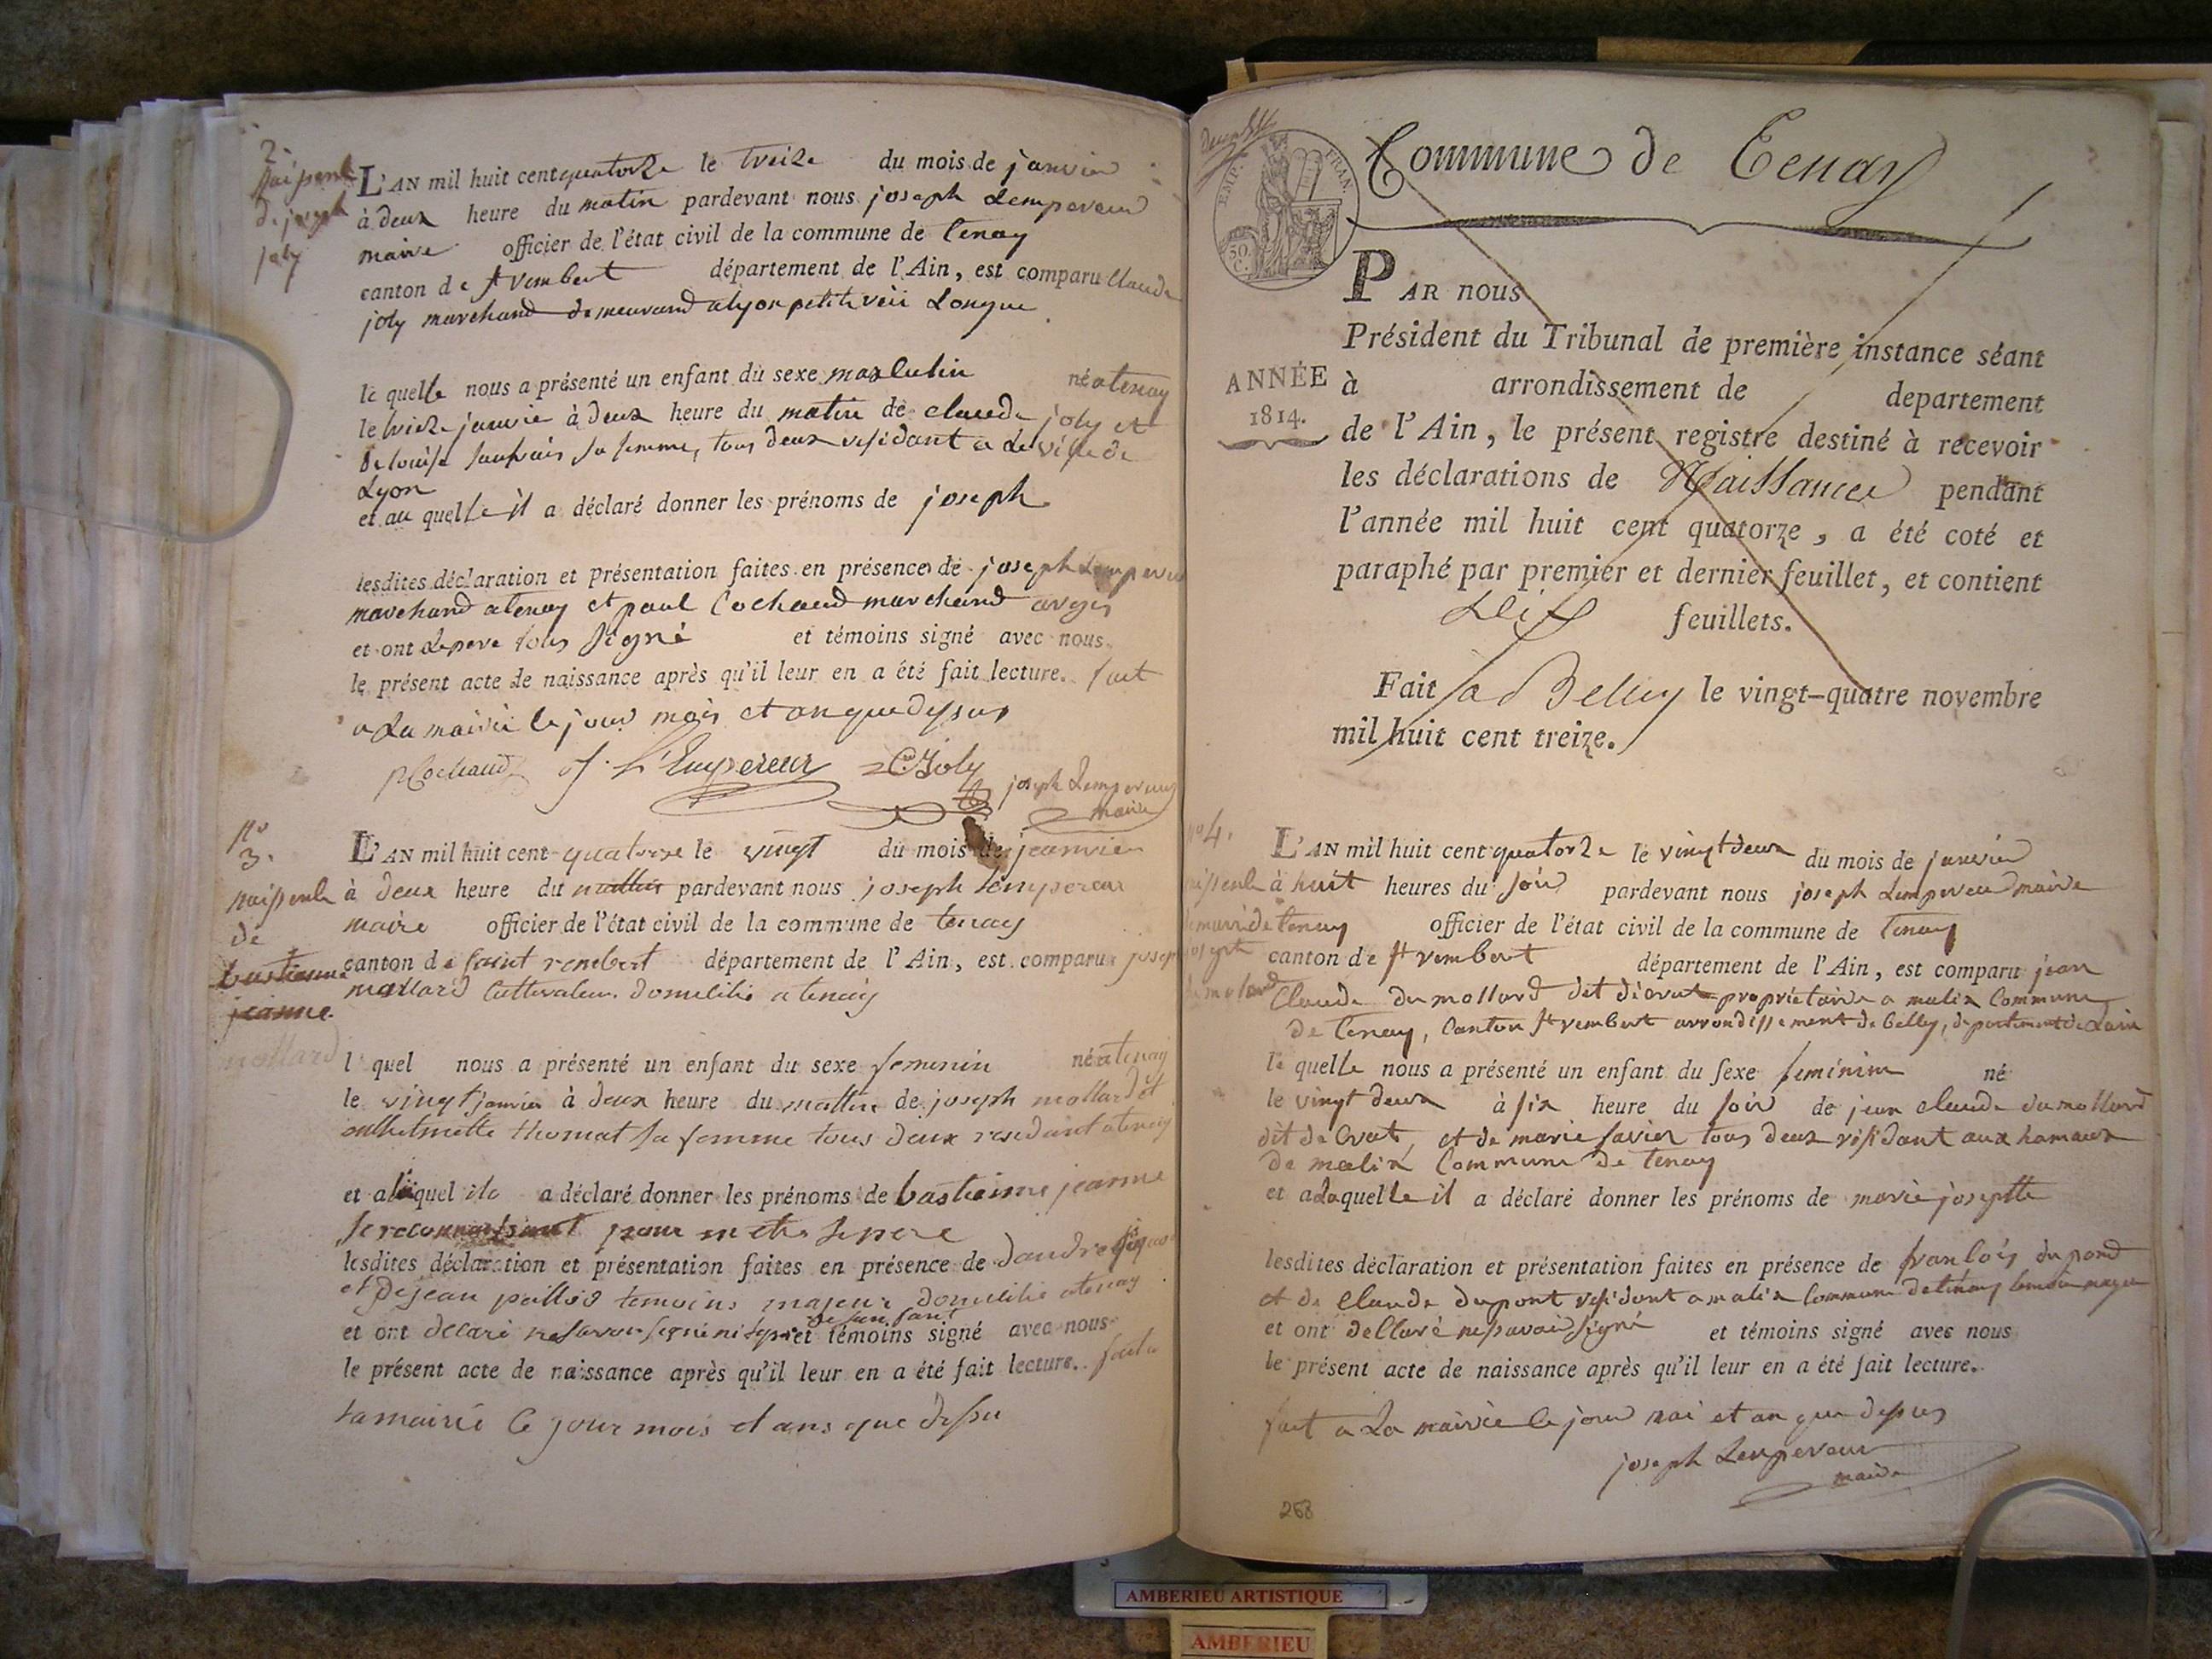 2.
naissance
de joseph
joly
L'AN mil huit cent quatorze le treize du mois de janvier
à deux heure du matin pardevant nous joseph Lempereur
maire officier de l'état civil de la commune de tenay
canton de st rembert département de l'Ain, est comparu Claude
joly marchand demeurand a lyon petite rüe Longue
le quelle nous a présenté un enfant du sexe masculin né a tenay
le treize janvie à deux heure du matin de claude joly et
de louise sa femme, tous deux residant a La ville de
Lyon
et au quelle il a déclaré donner les prénoms de joseph
lesdites déclaration et présentation faites en présence de joseph Lempereur
marchand a tenay et paul Cochaud marchand
et ont Le pere tous signé et témoins signé avec nous
le présent acte de naissance après qu'il leur en a été fait lecture. fait
a La mairie le jour mois et an que dessus
P Cochaud J. L'Empereur C. Joly
joseph Lempereur
maire
no
3.
naissence
de
bastienne
jeanne
mollard
L'AN mil huit cent quatorze le vingt du mois de jeanvier
à deux heure du mattin pardevant nous joseph lempereur
maire officier de l'état civil de la commune de tenay
canton de saint rembert département de l'Ain, est comparu joseph
mollard cultivateur domicilié a tenay
l quel nous a présenté un enfant du sexe feminin né a tenay
le vingt janvier à deux heure du mattin de joseph mollard et
thomat sa femme tous deux residant a tenay
et a laquel il a déclaré donner les prénoms de bastienne jeanne
se reconnoissant pour
lesdites déclaration et présentation faites en présence de
et de jean temoins majeur domicilié a tenay
et ont declaré ne savoir signé ni le pere de l'enfant et témoins signé avec nous
le présent acte de naissance après qu'il leur en a été fait lecture. fait a
la mairié le jour mois et ans que dessu
Commune de Tenay
EMP. FRAN.
50 C.
PAR nous
Président du Tribunal de première instance séant
ANNÉE
1814.
à arrondissement de departement
de l'Ain, le présent registre destiné à recevoir
les déclarations de Naissance pendant
l'année mil huit cent quatorze, a été coté et
paraphé par premier et dernier feuillet, et contient
Dix feuillets.
Fait a Belley le vingt-quatre novembre
mil huit cent treize.
no 4.
L'AN mil huit cent quatorze le vingt deux du mois de janvier
à huit heures du soir pardevant nous joseph Lempereur maire
de tenay officier de l'état civil de la commune de tenay
canton de st rembert département de l'Ain, est comparu jean
Claude dumollard dit propriétaire a malix Commune
de tenay, Canton st rembert arrondissement de belley, departement de Lain
le quelle nous a présenté un enfant du sexe feminim né
le vingt deux à six heure du soir de jean claude dumollard
dit et de marie savier tous deux residant aux hamaux
de malix Commune de tenay
et a Laquelle il a déclaré donner les prénoms de marie josephte
lesdites déclaration et présentation faites en présence de franlois dupond
et de Claude dupont residant a malix Commune de tenay
et ont declaré ne savoir signé et témoins signé avec nous
le présent acte de naissance après qu'il leur en a été fait lecture.
fait a La mairie le jour moi et an que dessus
joseph Lempereur
maire
268
AMBERIEU ARTISTIQUE
AMBERIEU